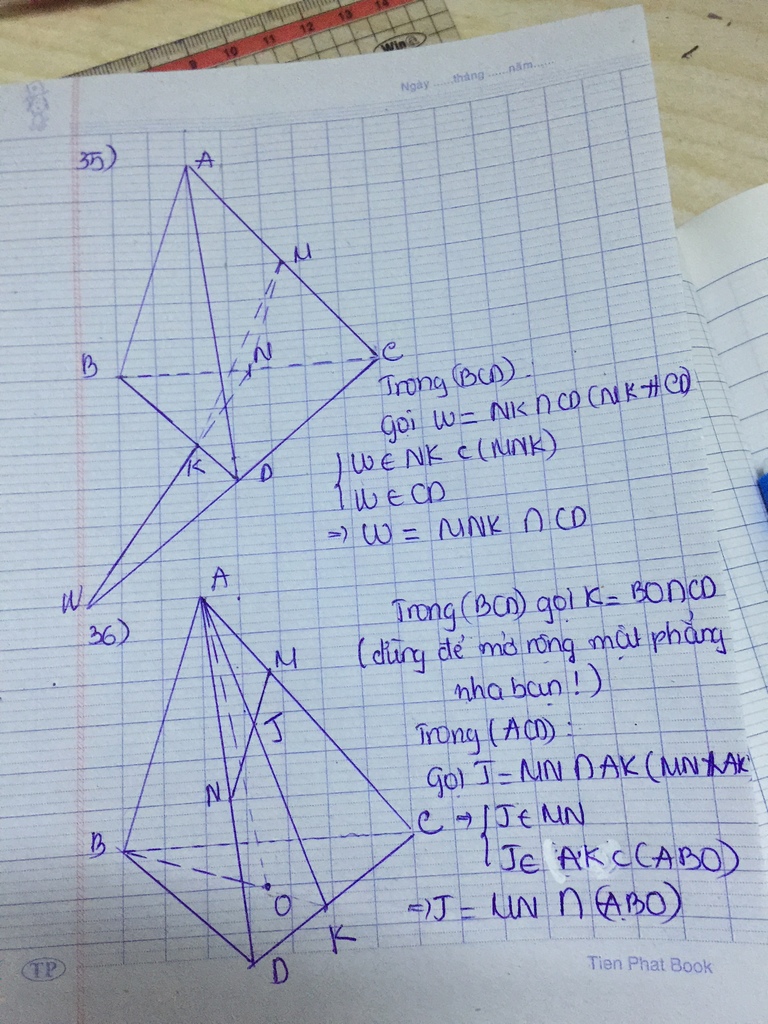 9 10 11 12 13 14
Win
Ngày ......tháng ......năm......
35)
A
M
B
N
C
K
D
W
Trong (BCD) :
gọi W = NK ∩ CD (NK ∦ CD)
{ W ∈ NK ⊂ (MNK)
{ W ∈ CD
=> W = MNK ∩ CD
36)
A
M
J
N
B
C
O
K
D
Trong (BCD) gọi K = BO ∩ CD
(dùng để mở rộng mặt phẳng
nha bạn !)
Trong (ACD) :
Gọi J = MN ∩ AK (MN ∦ AK
=> { J ∈ MN
{ J ∈ AK ⊂ (ABO)
=> J = MN ∩ (ABO)
TP
Tien Phat Book